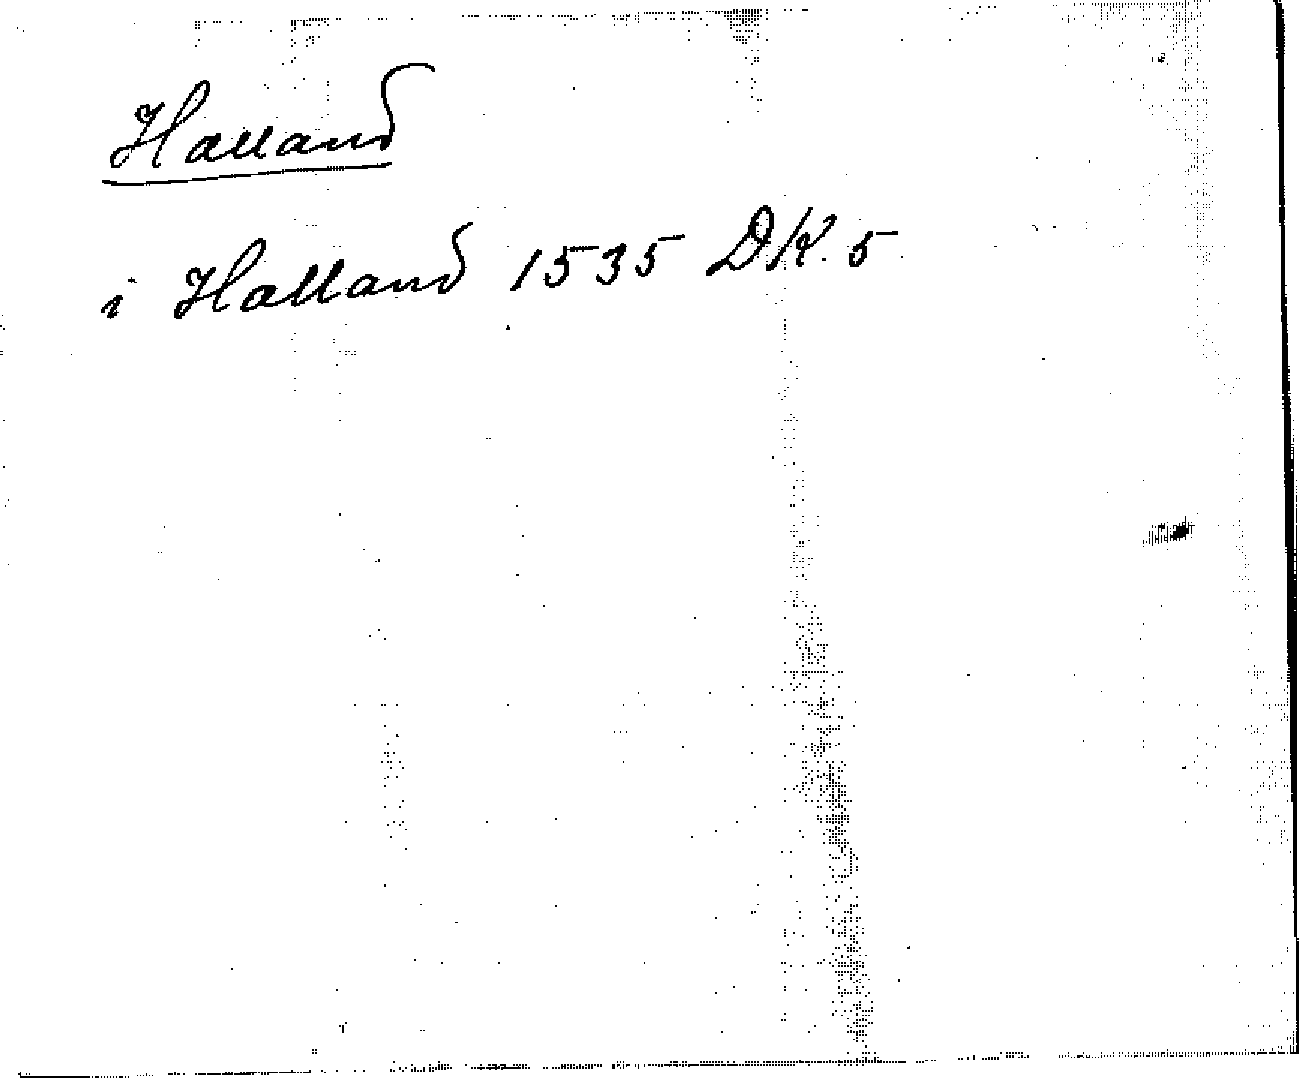 Halland
i Halland 1535 DK. 5